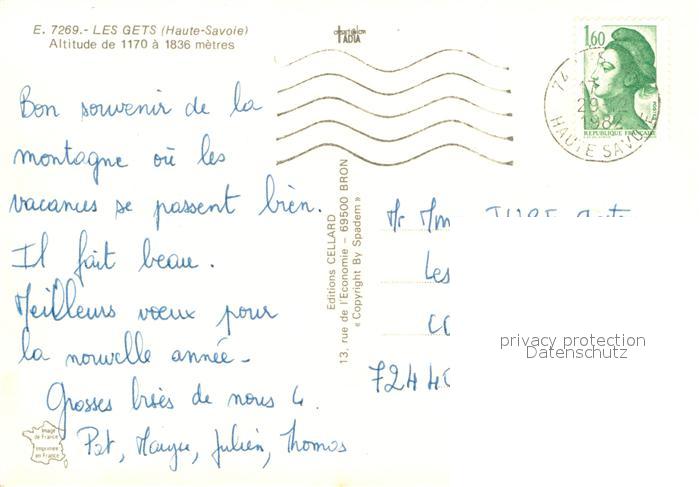 E. 7269.- LES GETS (Haute-Savoie)
Altitude de 1170 à 1836 mètres
1,60
29
1982
HAUTE SAVOIE
REPUBLIQUE FRANÇAISE
Bon souvenir de la
montagne où les
vacances se passent bien.
Il fait beau.
Meilleurs voeux pour
la nouvelle année-
Grosses bises de nous 4.
Pat, Julien, Thomas
Image
de France
Imprimée
en France
Editions CELLARD
13, rue de l'Economie - 69500 BRON
« Copyright By Spadem »
Mr Mm
Les
72440
privacy protection
Datenschutz